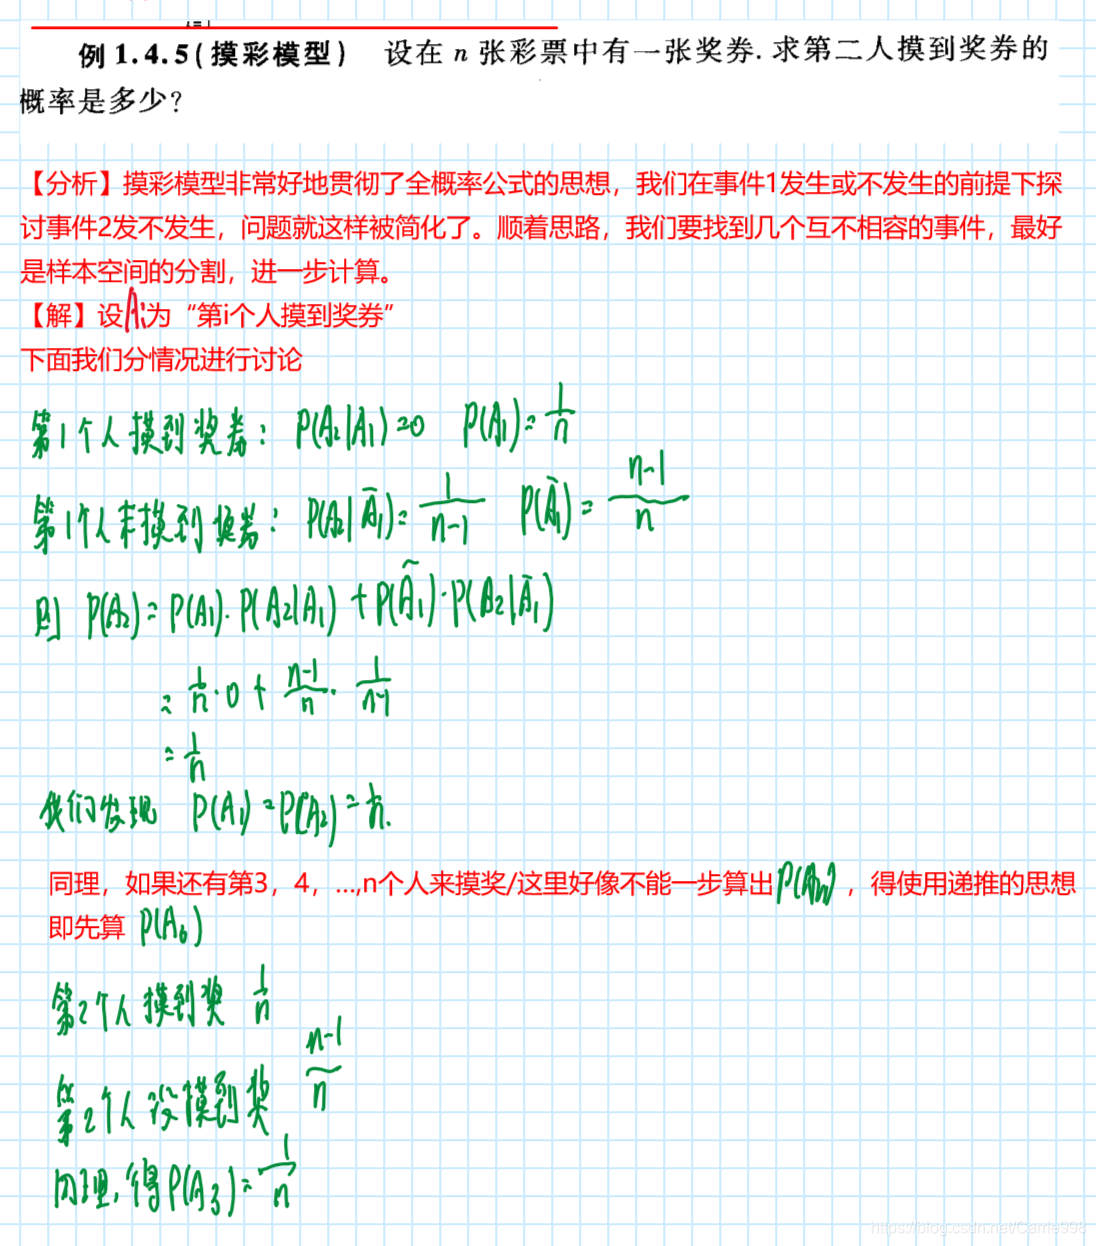 例 1.4.5(摸彩模型) 设在 n 张彩票中有一张奖券.求第二人摸到奖券的
概率是多少?
【分析】摸彩模型非常好地贯彻了全概率公式的思想，我们在事件1发生或不发生的前提下探
讨事件2发不发生，问题就这样被简化了。顺着思路，我们要找到几个互不相容的事件，最好
是样本空间的分割，进一步计算。
【解】设Ai为“第i个人摸到奖券”
下面我们分情况进行讨论
第1个人摸到奖券: P(A₂|A₁)=0 P(A₁)=1/n
第1个人未摸到奖券: P(A₂|Ā₁)=1/(n-1) P(Ā₁)=(n-1)/n
则 P(A₂)=P(A₁)·P(A₂|A₁)+P(Ā₁)·P(A₂|Ā₁)
=1/n·0+(n-1)/n·1/(n-1)
=1/n
我们发现 P(A₁)=P(A₂)=1/n.
同理，如果还有第3，4，...,n个人来摸奖/这里好像不能一步算出 ，得使用递推的思想
即先算
第2个人摸到奖 1/n
第2个人没摸到奖 (n-1)/n
同理,得P(A₃)=1/n
https://blog.csdn.net/Carrie998